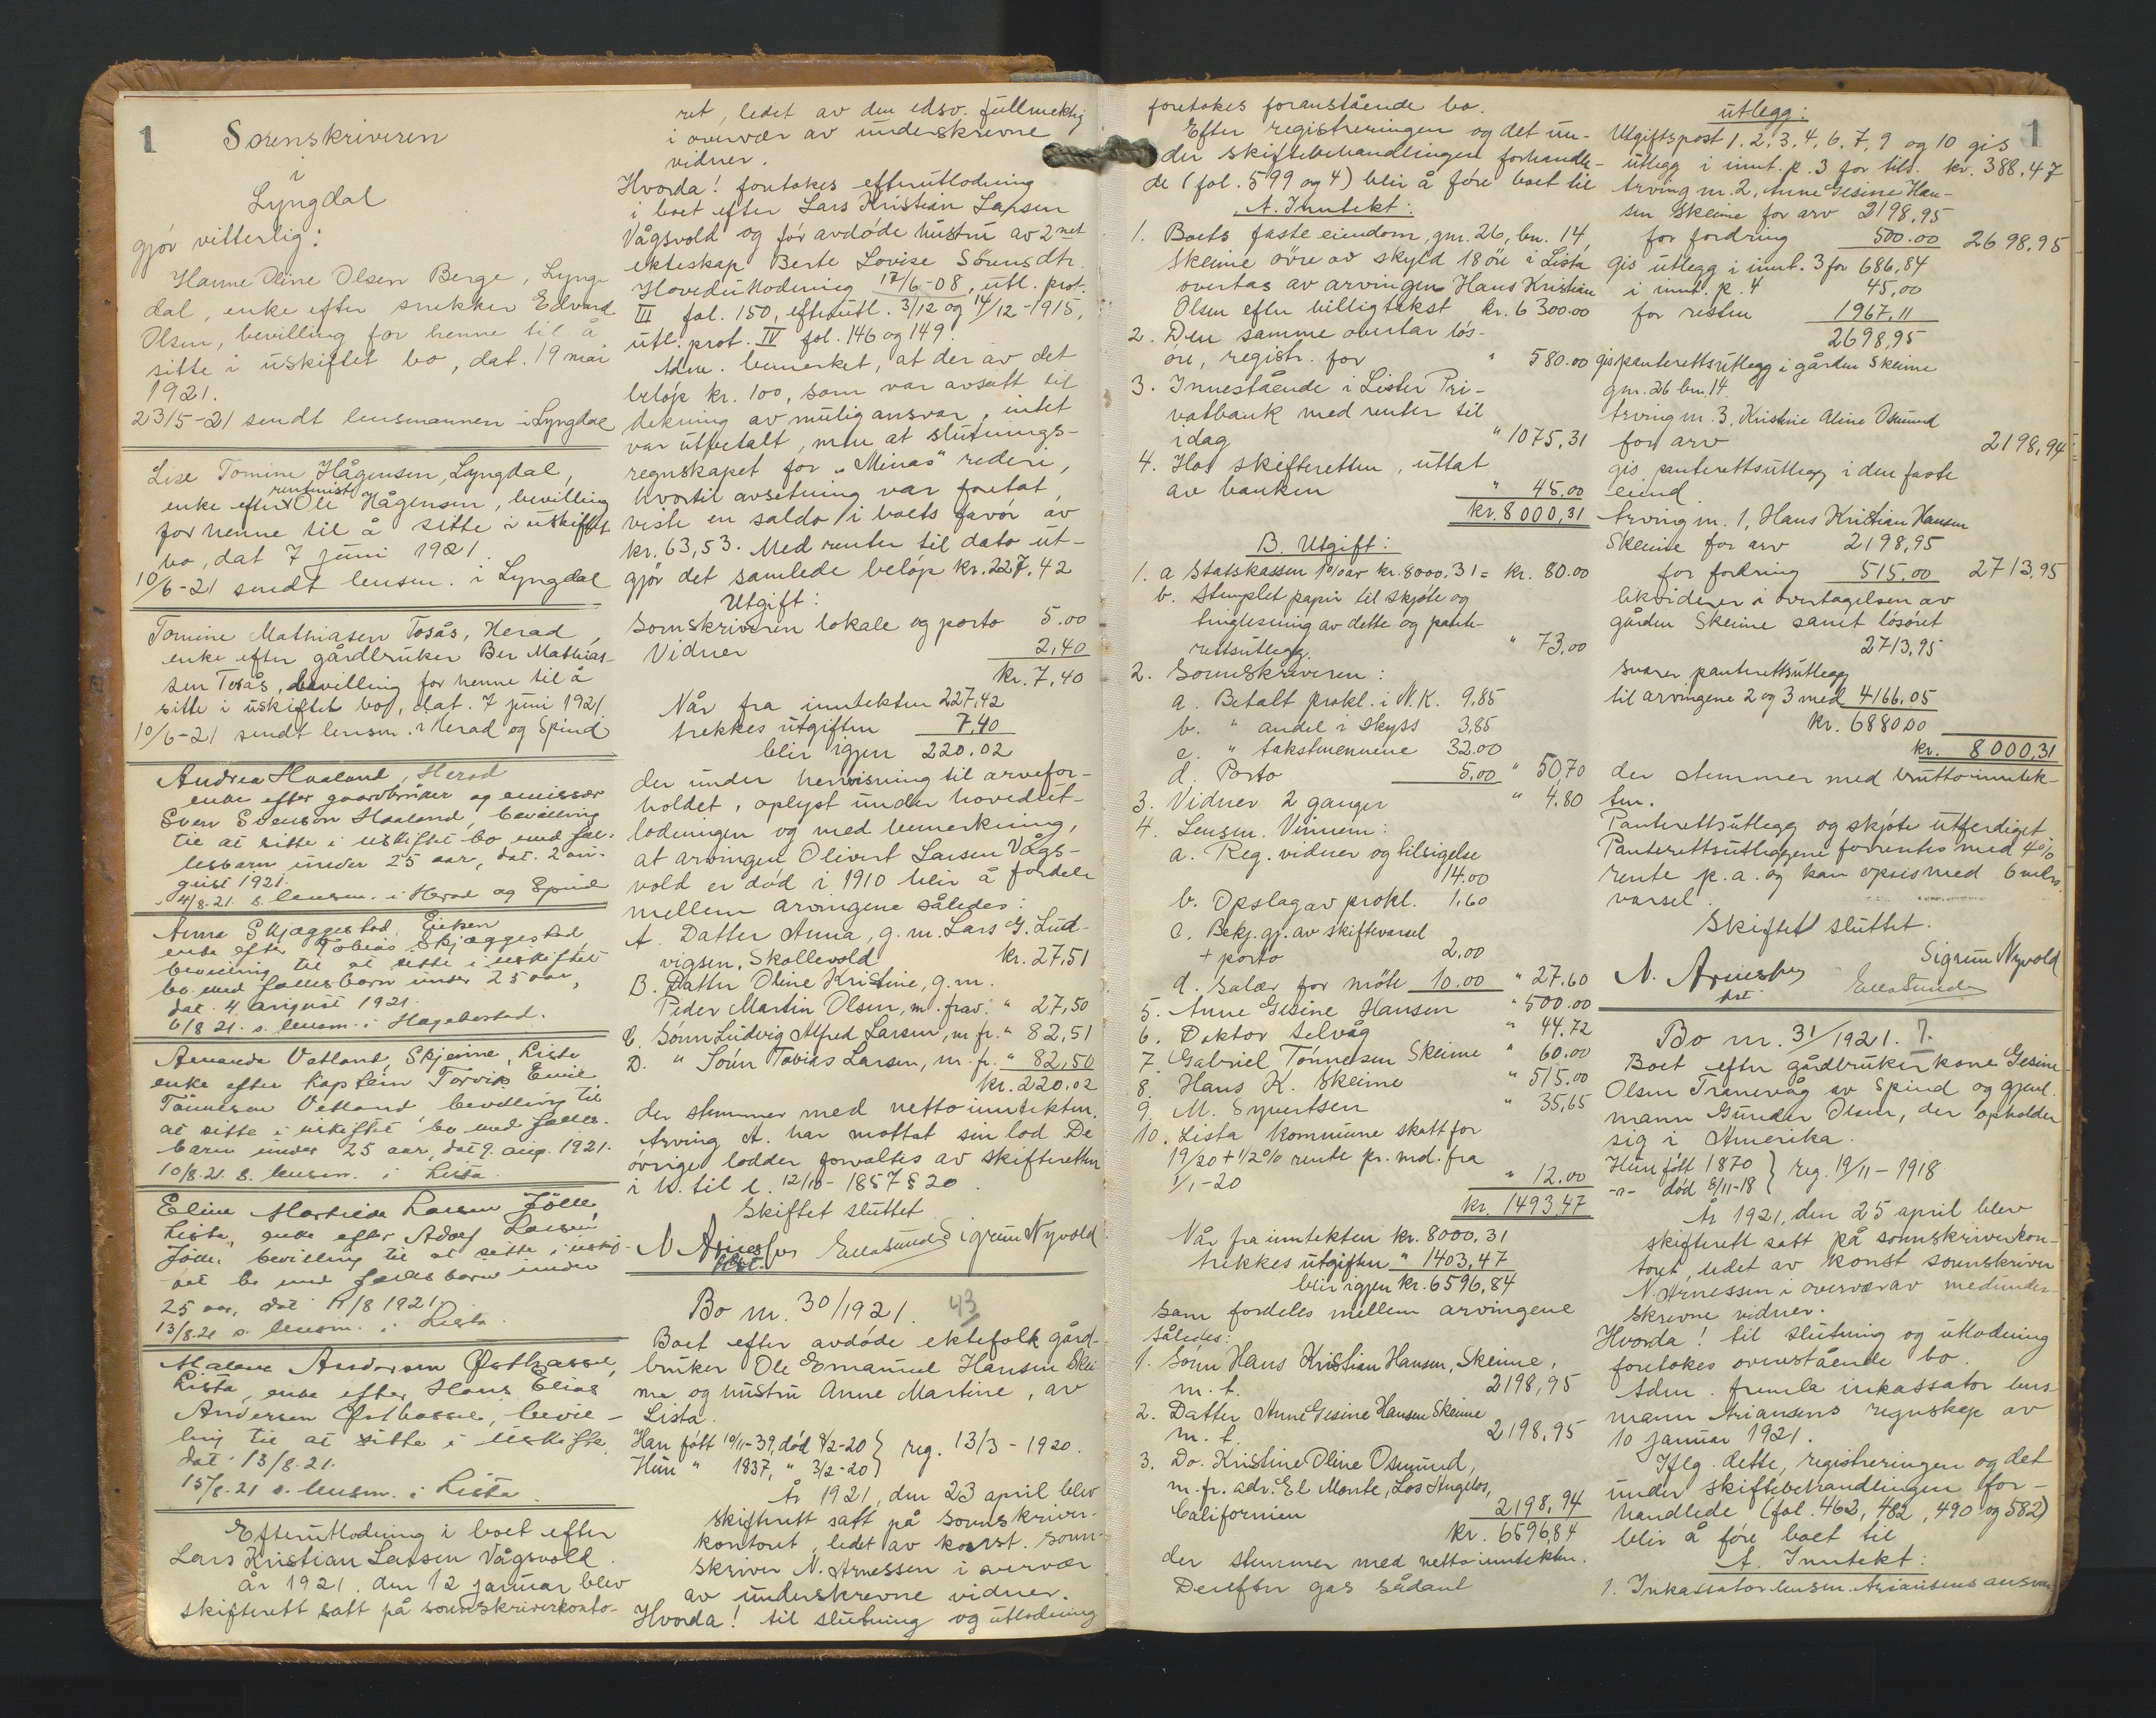 1
Sorenskriveren
i
Lyngdal
gjør vitterlig:
Hanne Oline Olsen Berge, Lyng-
dal, enke efter snekker Edvard
Olsen, bevilling for henne til å
sitte i uskiftet bo, dat. 19 mai
1921.
23/5-21 sendt lensmannen i Lyngdal
Lise Tomine Hågensen, Lyngdal,
rentenist
enke efter Ole Hågensen, bevilling
for henne til å sitte i uskiftet
bo, dat 7 juni 1921.
10/6-21 sendt lensm. i Lyngdal
Tomine Mathiasen Tosås, Herad,
enke efter gårdbruker Ber Mathias-
sen Tosås, bevilling for henne til å
sitte i uskiftet bo, dat. 7 juni 1921
10/6-21 sendt lensm. i Herad og Spind
Andrea Haaland, Herad
enke efter gaardbruker og emissær
Sven Svenson Haaland, bevilling
til at sitte i uskiftet bo med fæl-
lesbarn under 25 aar, dat. 2 au-
gust 1921.
4/8.21. s. lensm. i Herad og Spind
Anna Skjæggestad, Eiken
enke efter Tobias Skjæggestad
bevilling til at sitte i uskiftet
bo med fællesbarn under 25 aar,
dat. 4 august 1921.
6/8 21. s. lensm. i Hægebostad.
Amanda Vatland, Skjeime, Lista
enke efter kaptein Torvik Emil
Tønnesen Vetland, bevilling til
at sitte i uskiftet bo med fælles-
barn under 25 aar, dat 9. aug. 1921.
10/8.21. s. lensm. i Lista
Eline Martilda Larsen Jølle,
Lista, enke efter Adolf Larsen
Jølle, bevilling til at sitte i uskif-
tet bo med fællesbarn under
25 aar, dat 11/8 1921
13/8.21 s. lensm. i Lista.
Malene Andersen Østhassel,
Lista, enke efter Hans Elias
Andersen Østhassel, bevil-
ling til at sitte i uskifte,
dat. 13/8.21.
15/8.21 s. lensm. i Lista.
Efterutlodning i boet efter
Lars Kristian Larsen Vågsvold.
År 1921. den 12 januar blev
skifterett satt på sorenskriverkonto-
ret, ledet av den edsv. fullmektig
i overvær av underskrevne
vidner.
Hvorda! foretokes efterutlodning
i boet efter Lars Kristian Larsen
Vågsvold og før avdøde hustru av 2net
ekteskap Berte Lovise Sørensdtr.
Hovedutlodning 17/6-08, utl. prot.
III fol. 150, efterutl. 3/12 og 14/12-1915,
utl. prot. IV fol. 146 og 149.
Adm. bemerket, at der av det
beløp kr. 100, som var avsatt til
dekning av mulig ansvar, intet
var utbetalt, men at slutnings-
regnskapet for "Minas" rederi,
hvortil avsetning var foretat,
viste en saldo i boets favør av
kr. 63,53. Med renter til dato ut-
gjør det samlede beløp kr. 227,42
Utgift:
Sorenskriveren lokale og porto 5.00
Vidner 2,40
kr. 7,40
Når fra inntekten 227,42
trekkes utgiften 7,40
blir igjen 220.02
der under henvisning til arvefor-
holdet, oplyst under hovedut-
lodningen og med bemerkning,
at arvingen Olivert Larsen Vågs-
vold er død i 1910 blir å fordele
mellem arvingene således:
A. Datter Anna, g. m. Lars G. Lud-
vigsen, Skollevold kr. 27,51
B. Datter Oline Kristine, g. m.
Peder Martin Olsen, m. frav. " 27,50
C. Sønn Ludvig Alfred Larsen, m. fr. " 82,51
D. " Sørin Tobias Larsen, m. fr. " 82,50
kr. 220.02
der stemmer med nettoinntekten.
Arving A. har mottat sin lod De
øvrige lodder forvaltes av skifteretten
i h. til l. 12/10-1857 § 20.
Skiftet sluttet
N. Arnessen Ella Sunde Sigrun Nyvold
kst.
Bo nr. 30/1921. 43
Boet efter avdøde ektefolk gård-
bruker Ole Emanuel Hansen Skei-
me og hustru Anne Martine, av
Lista.
Han født 10/11-39, død 8/2-20 } reg. 13/3-1920.
Hun " 1837, " 3/2-20
År 1921, den 23 april blev
skifterett satt på sorenskriver-
kontoret, ledet av konst. soren-
skriver N. Arnessen i overvær
av underskrevne vidner.
Hvorda! til slutning og utlodning
foretokes foranstående bo.
Efter registreringen og det un-
der skiftebehandlingen forhandle-
de (fol. 599 og 4) blir å føre boet til
A. Inntekt:
1. Boets faste eiendom, gnr. 26, bn. 14,
Skeime øvre av skyld 18 øre i Lista
overtas av arvingen Hans Kristian
Olsen efter billigtekst kr. 6300.00
2. Den samme overtar løs-
øre, registr. for " 580.00
3. Innestående i Lister Pri-
vatbank med renter til
idag " 1075,31
4. Hos skifteretten, uttat
av banken " 45.00
kr. 8000,31
B. Utgift:
1. a Statskassen 1% av kr. 8000.31 = kr. 80.00
b. stemplet papir til skjøte og
tinglesning av dette og pante-
rettsutlegg. " 73,00
2. Sorenskriveren:
a. Betalt prokl. i N.K. 9,85
b. " andel i skyss 3,85
c. " takstmennene 32.00
d. Porto 5,00 " 50,70
3. Vidner 2 ganger " 4,80
4. Lensm. Vinnem:
a. Reg. vidner og tilsigelse
14.00
b. Opslag av prokl. 1,60
c. Bekj. gj. av skiftevarsel
+ porto 2,00
d. Salær for møte 10.00 " 27.60
5. Anne Gesine Hansen " 500.00
6. Doktor Selvåg " 44.72
7. Gabriel Tønnesen Skeime " 60.00
8. Hans K. Skeime " 515.00
9. M. Syvertsen " 35,65
10. Lista kommune skatt for
19/20 + 1/2% rente pr. md. fra
1/1-20 " 12.00
kr. 1493,47
Når fra inntekten kr. 8000.31
trekkes utgiften " 1403,47
blir igjen kr. 6596,84
som fordeles mellem arvingene
således:
1. Sønn Hans Kristian Hansen, Skeime,
m. t. 2198,95
2. Datter Anne Gesine Hansen Skeime
m. t. 2198,95
3. Do. Kristine Oline Osmund,
m. fr. adr. El Monte, Los Angelos,
Californien 2198,94
kr. 6596,84
der stemmer med nettoinntekten.
Derefter gas sådant
utlegg: 1
Utgiftspost 1. 2, 3, 4, 6, 7, 9 og 10 gis
utlegg i innt. p. 3 for tils. kr. 388,47
Arving nr. 2, Anne Gesine Han-
sen Skeime for arv 2198,95
for fordring 500.00 2698,95
gis utlegg i innt. 3 for 686,84
i innt. p. 4 45,00
for resten 1967,11
2698,95
gis panterettsutlegg i gården Skeime
gnr. 26 bn. 14.
Arving nr. 3, Kristine Oline Osmund
for arv 2198,94
gis panterettsutlegg i den faste
eiend.
Arving nr. 1, Hans Kristian Hansen
Skeime for arv 2198,95
for fordring 515,00 2713,95
likviderer i overtagelsen av
gården Skeime samt løsøret
2713,95
svarer panterettsutlegg
til arvingene 2 og 3 med 4166.05
kr. 6880.00
kr. 8000,31
der stemmer med bruttoinntek-
ten.
Panterettsutlegg og skjøte utferdiget.
Panterettsutleggene forrentes med 4%
rente p. a. og kan opsis med 6 mdrs.
varsel.
Skiftet sluttet.
Sigrun Nyvold
N. Arnessen Ella Sunde
kst.
Bo nr. 31/1921. 7.
Boet efter gårdbrukerkone Gesine
Olsen Tranevåg av Spind og gjenl.
mann Gunder Olsen, der opholder
sig i Amerika.
Hun født 1870 } reg. 19/11-1918
-"- død 8/11-18
År 1921, den 25 april blev
skifterett satt på sorenskriverkon-
toret, ledet av konst sorenskriver
N. Arnessen i overvær av medunder-
skrevne vidner.
Hvorda! til slutning og utlodning
foretokes ovenstående bo.
Adm. fremla inkassator lens-
mann Ariansens regnskap av
10 januar 1921.
Iflg. dette, registreringen og det
under skiftebehandlingen for-
handlede (fol. 462, 482, 490 og 582)
blir å føre boet til
A. Inntekt:
1. Inkassator lensm. Ariansens ansvar